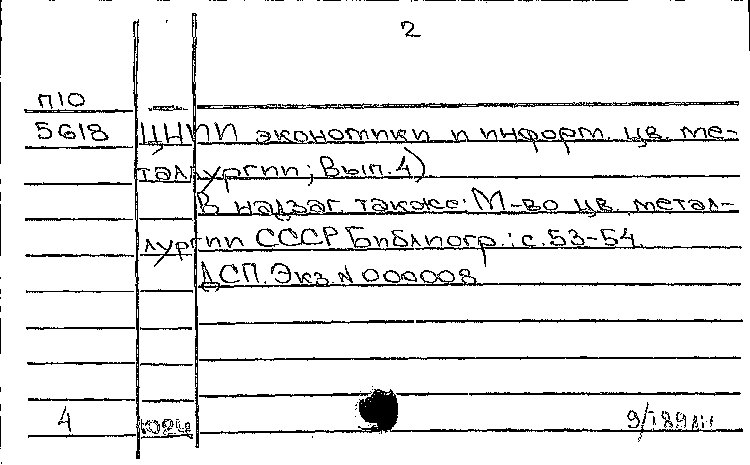 2
П10
5618 ЦНИИ экономики и информ. цв. ме-
таллургии; Вып. 4)
В надзаг. также: М-во цв. метал-
лургии СССР Библиогр.: с. 53-54.
ДСП. Экз. N 000008
4